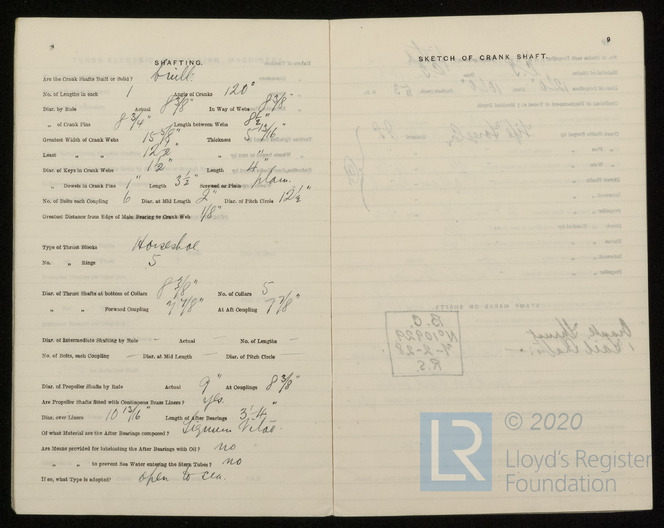 8
SHAFTING.
Are the Crank Shafts Built or Solid? built
No. of Lengths in each 1 Angle of Cranks 120°
Diar. by Rule Actual 8 3/8" In Way of Webs 8 3/8"
„ of Crank Pins 8 3/4" Length between Webs 8 1/2"
Greatest Width of Crank Webs 15 5/8" Thickness 5 13/16"
Least „ „ 12 1/2" „ „
Diar. of Keys in Crank Webs 1 1/2" Length 4"
„ Dowels in Crank Pins 1" Length 3 1/2" Screwed or Plain plain.
No. of Bolts each Coupling 6 Diar. at Mid Length 2" Diar. of Pitch Circle 12 1/2"
Greatest Distance from Edge of Main Bearing to Crank Web 1/8"
Type of Thrust Blocks Horseshoe
No. „ Rings 5
Diar. of Thrust Shafts at bottom of Collars 8 3/8" No. of Collars 5
„ „ Forward Coupling 7 7/8" At Aft Coupling 7 7/8"
Diar. of Intermediate Shafting by Rule — Actual — No. of Lengths —
No. of Bolts, each Coupling — Diar. at Mid Length — Diar. of Pitch Circle
Diar. of Propeller Shafts by Rule Actual 9" At Couplings 8 3/8"
Are Propeller Shafts fitted with Continuous Brass Liners? yes.
Diar. over Liners 10 13/16" Length of After Bearings
Of what Material are the After Bearings composed? Lignum Vitæ.
Are Means provided for lubricating the After Bearings with Oil? no
„ „ to prevent Sea Water entering the Stern Tubes? no
If so, what Type is adopted? open to sea.
9
SKETCH OF CRANK SHAFT.
© 2020
LR
Lloyd's Register
Foundation